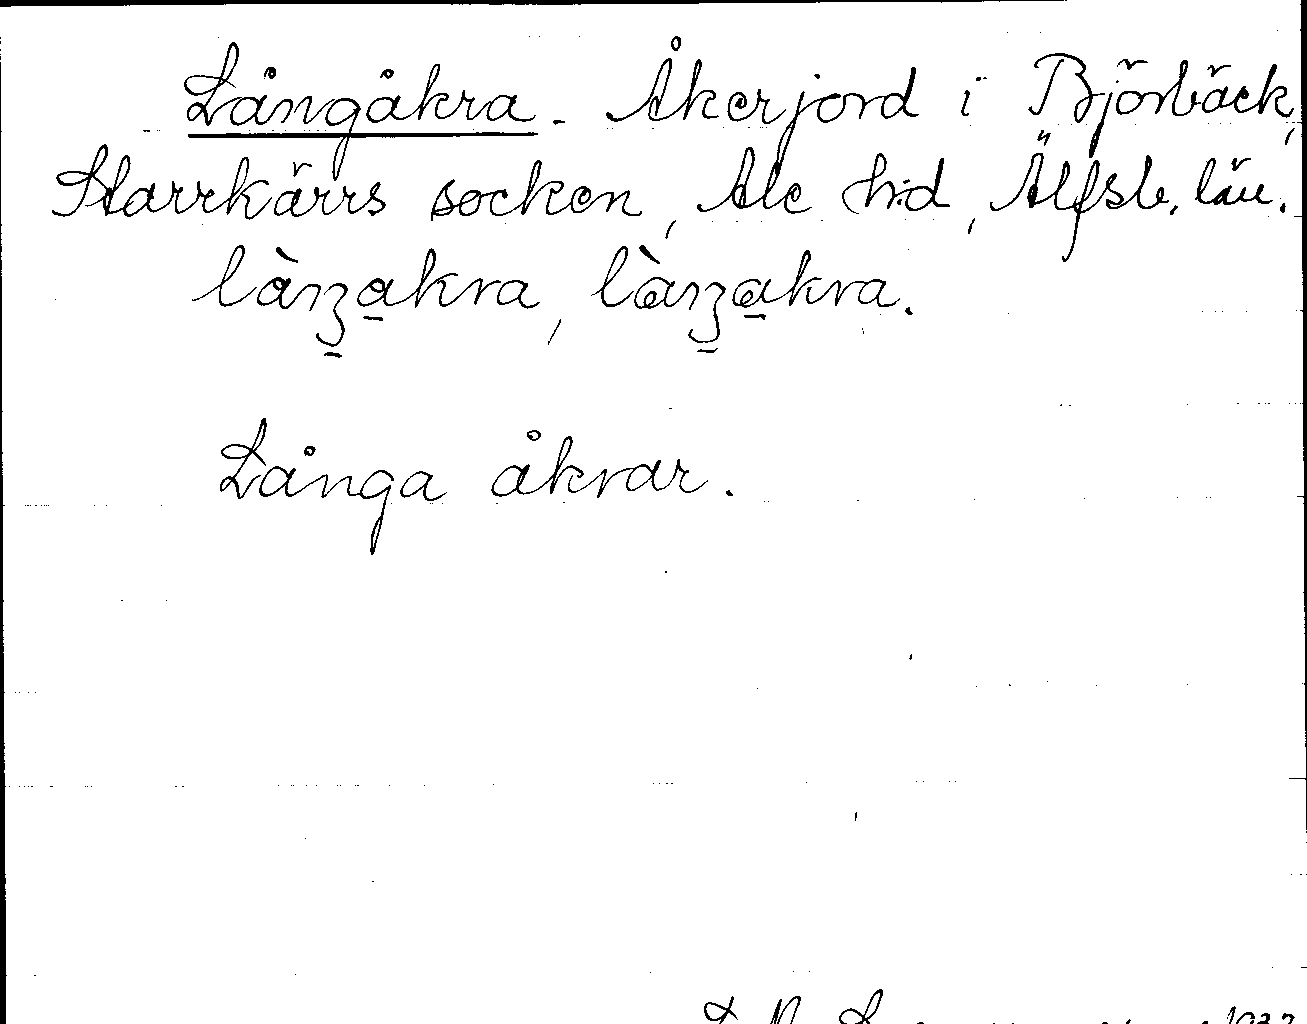 Långåkra. Åkerjord i Björbäck,
Starrkärrs socken, Ale h:d, Älfsb. län.
làŋa̠kra, làŋa̠kra.
Långa åkrar.